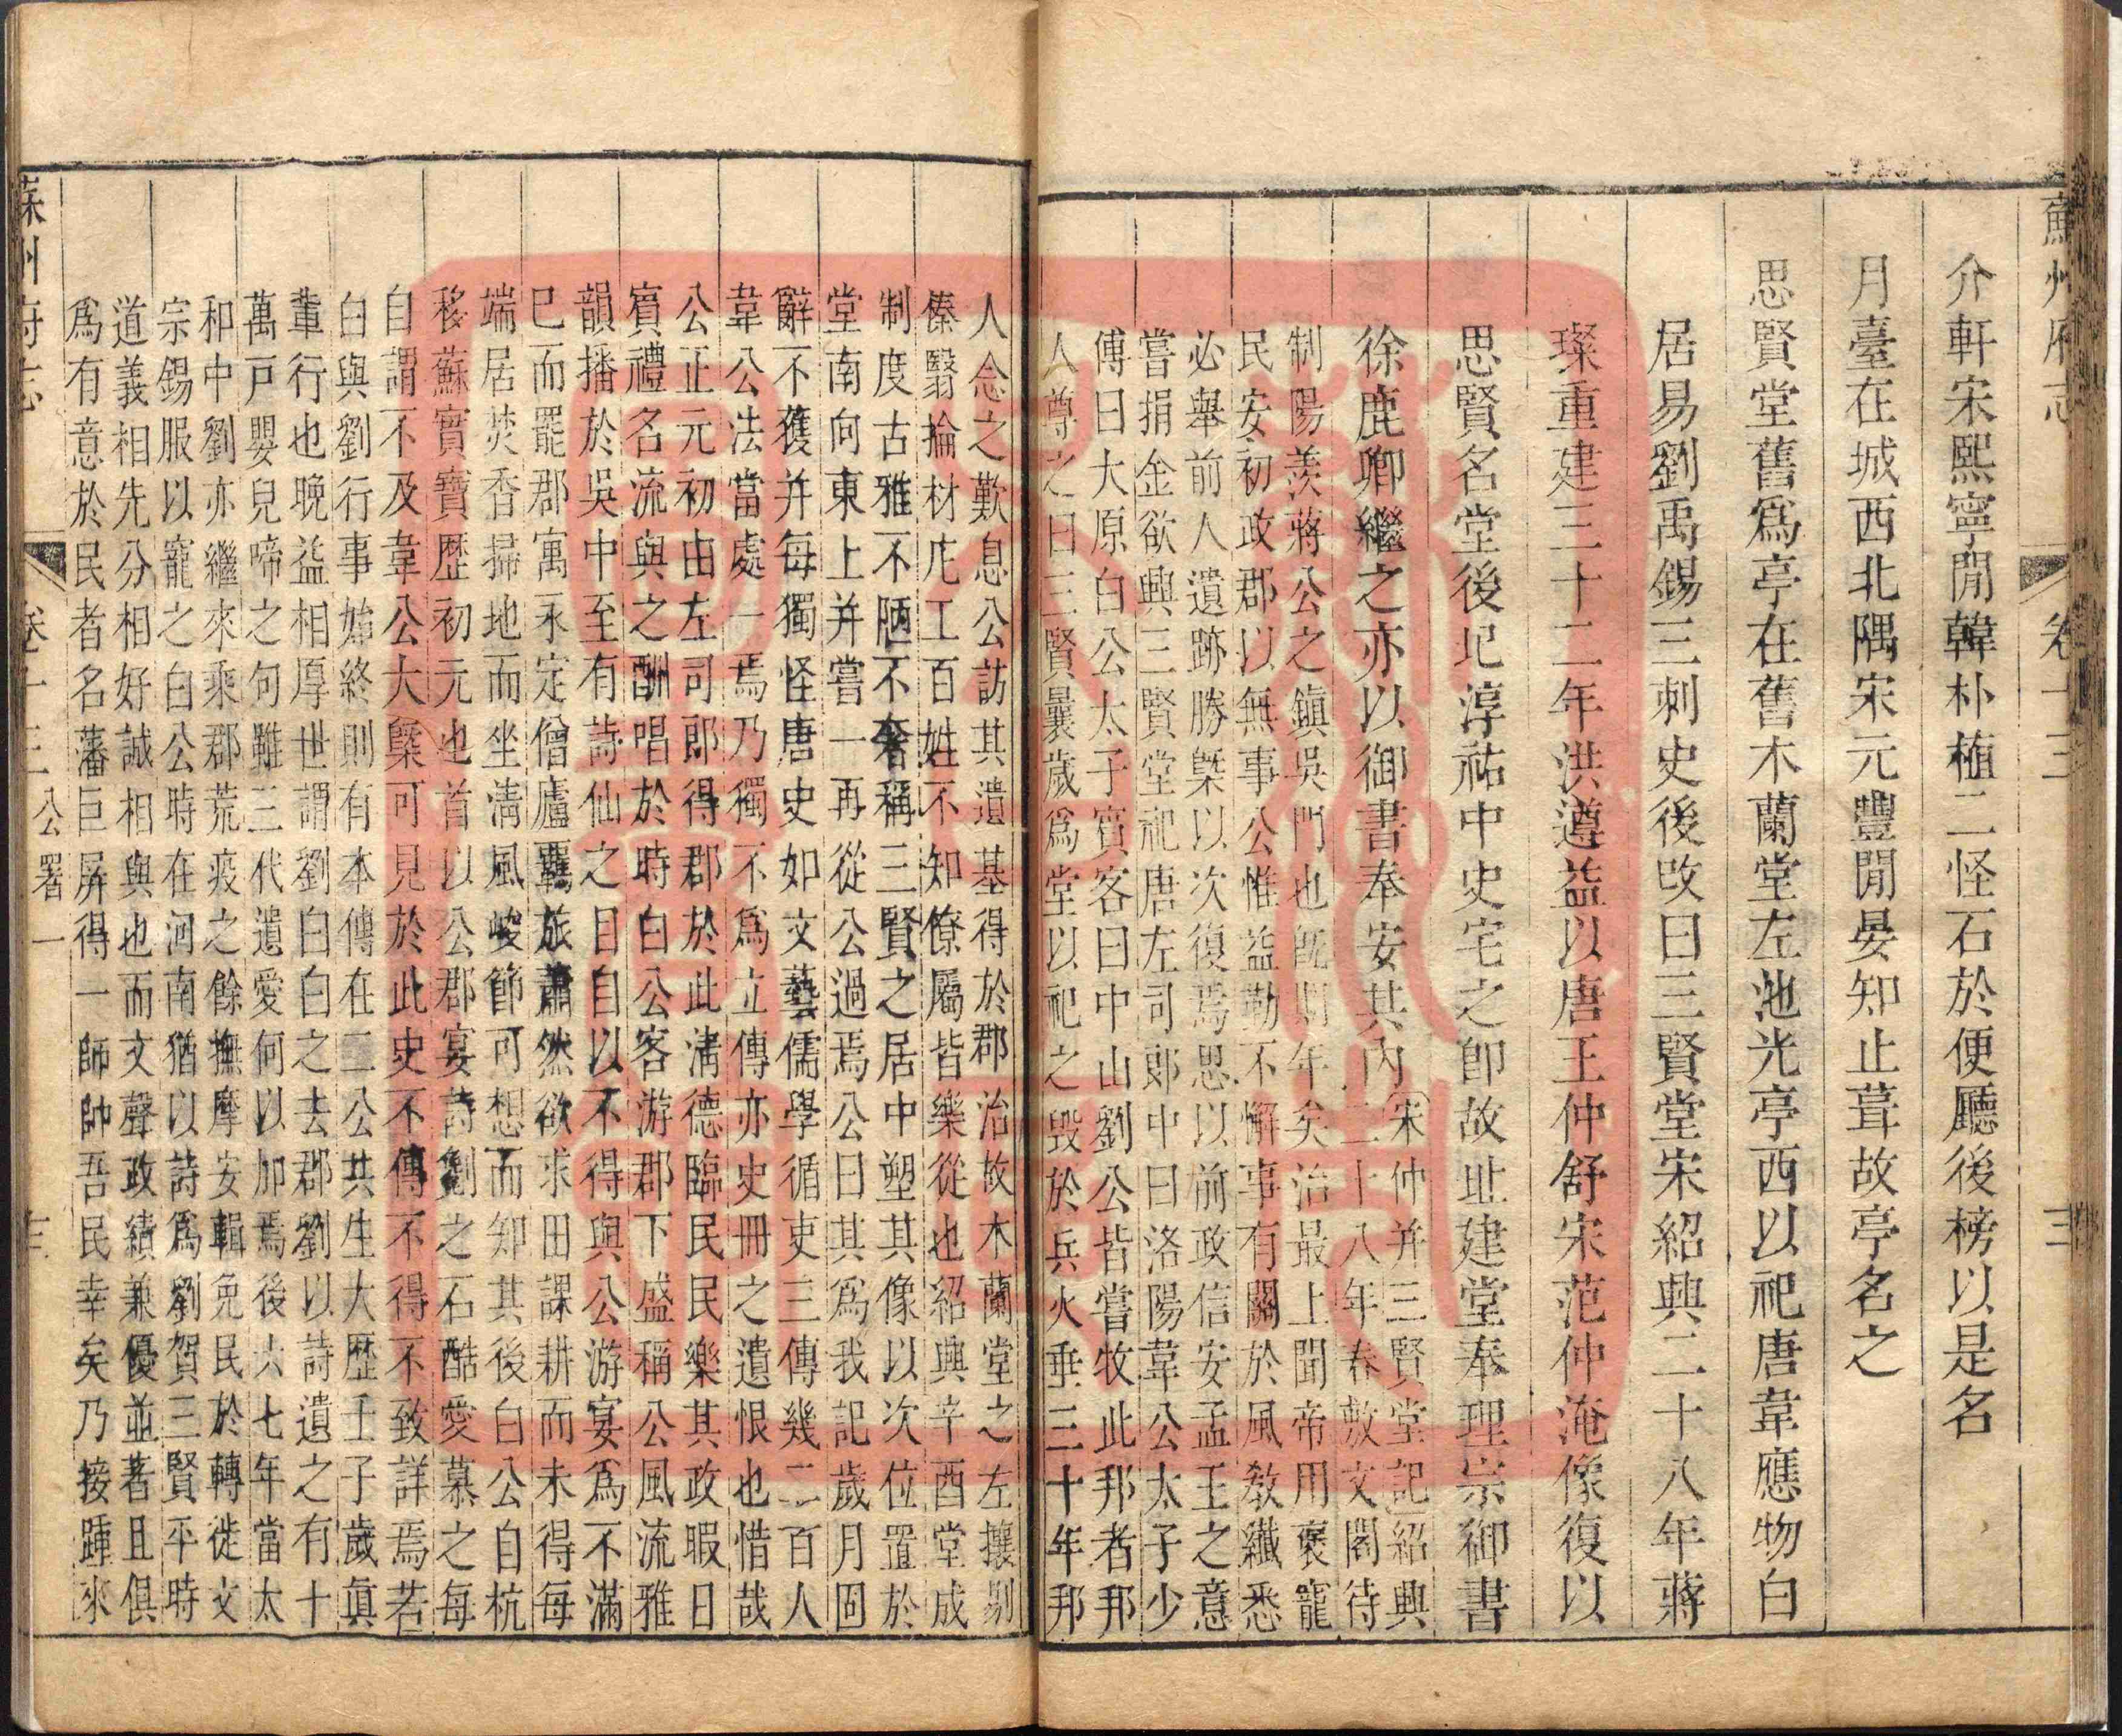 蘇州府志 卷十三 三
介軒宋熙寧閒韓朴植二怪石於便廳後榜以是名
月臺在城西北隅宋元豐閒晏知止葺故亭名之
思賢堂舊爲亭在舊木蘭堂左池光亭西以祀唐韋應物白
居易劉禹錫三刺史後改曰三賢堂宋紹興二十八年蔣
璨重建三十二年洪遵益以唐王仲舒宋范仲淹像復以
思賢名堂後圮淳祐中史宅之卽故址建堂奉理宗御書
徐鹿卿繼之亦以御書奉安其內
宋仲并三賢堂記紹興
二十八年春敷文閣待
制陽羨蔣公之鎮吳門也旣期年矣治最上聞帝用褒寵
民安初政郡以無事公惟益勤不懈事有關於風敎纖悉
必舉前人遺跡勝槩以次復焉思以前政信安孟王之意
嘗捐金欲興三賢堂祀唐左司郎中曰洛陽韋公太子少
傅曰大原白公太子賓客曰中山劉公皆嘗牧此邦者邦
人尊之曰三賢曩歲爲堂以祀之毀於兵火垂三十年邦
人念之歎息公訪其遺基得於郡治故木蘭堂之左攘剔
榛翳掄材庀工百姓不知僚屬皆樂從也紹興辛酉堂成
制度古雅不陋不奢稱三賢之居中塑其像以次位置於
堂南向東上并嘗一再從公過焉公曰其爲我記歲月固
辭不獲并每獨怪唐史如文藝儒學循吏三傳幾二百人
韋公法當處一焉乃獨不爲立傳亦史冊之遺恨也惜哉
公正元初由左司郎得郡於此淸德臨民民樂其政暇日
賓禮名流與之酬唱於時白公客游郡下盛稱公風流雅
韻播於吳中至有詩仙之目自以不得與公游宴爲不滿
已而罷郡寓永定僧廬羈旅蕭然欲求田課耕而未得每
端居焚香掃地而坐淸風峻節可想而知其後白公自杭
移蘇實寶歷初元也首以公郡宴詩劉之石酷愛慕之每
自謂不及韋公大槩可見於此史不傳不得不致詳焉若
白與劉行事始終則有本傳在二公共生大歷壬子歲眞
輩行也晚益相厚世謂劉白白之去郡劉以詩遺之有十
萬戸嬰兒啼之句雖三代遺愛何以加焉後六七年當太
和中劉亦繼來乘郡荒疫之餘撫摩安輯免民於轉徙文
宗錫服以寵之白公時在河南猶以詩爲劉賀三賢平時
道義相先分相好誠相與也而文聲政績兼優並著且俱
爲有意於民者名藩巨屏得一師帥吾民幸矣乃接踵來
蘇州府志 卷十三 公署一 三